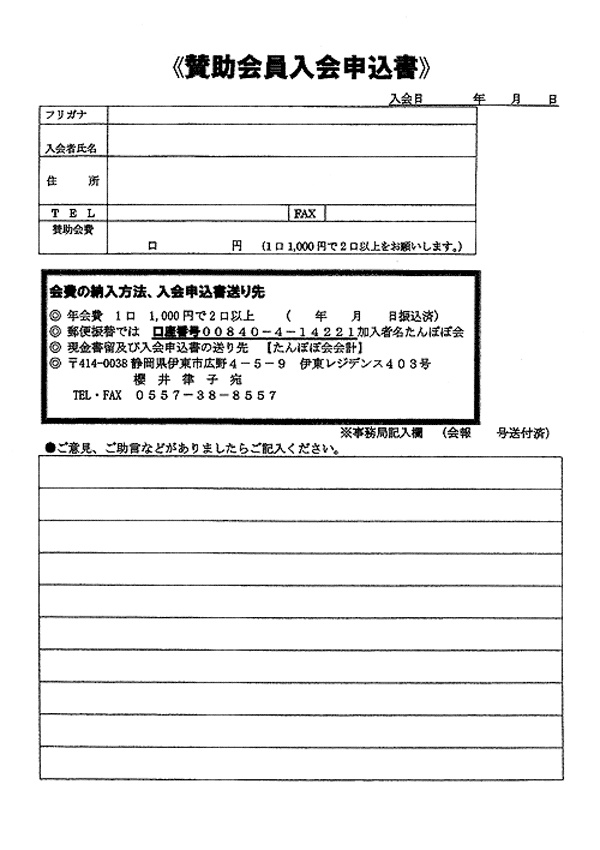 《賛助会員入会申込書》
入会日　　　年　　月　　日
フリガナ
入会者氏名
住　　所
ＴＥＬ　　　FAX
賛助会費
口　　　　円　（1口1,000円で2口以上をお願いします。）
会費の納入方法、入会申込書送り先
◎ 年会費　1口　1,000円で2口以上　　（　　年　　月　　日振込済）
◎ 郵便振替では　口座番号００８４０－４－１４２２１加入者名たんぽぽ会
◎ 現金書留及び入会申込書の送り先　【たんぽぽ会会計】
◎ 〒414-0038 静岡県伊東市広野４－５－９　伊東レジデンス４０３号
櫻　井　律　子　宛
TEL・FAX　０５５７－３８－８５５７
※事務局記入欄　（会報　　号送付済）
●ご意見、ご助言などがありましたらご記入ください。